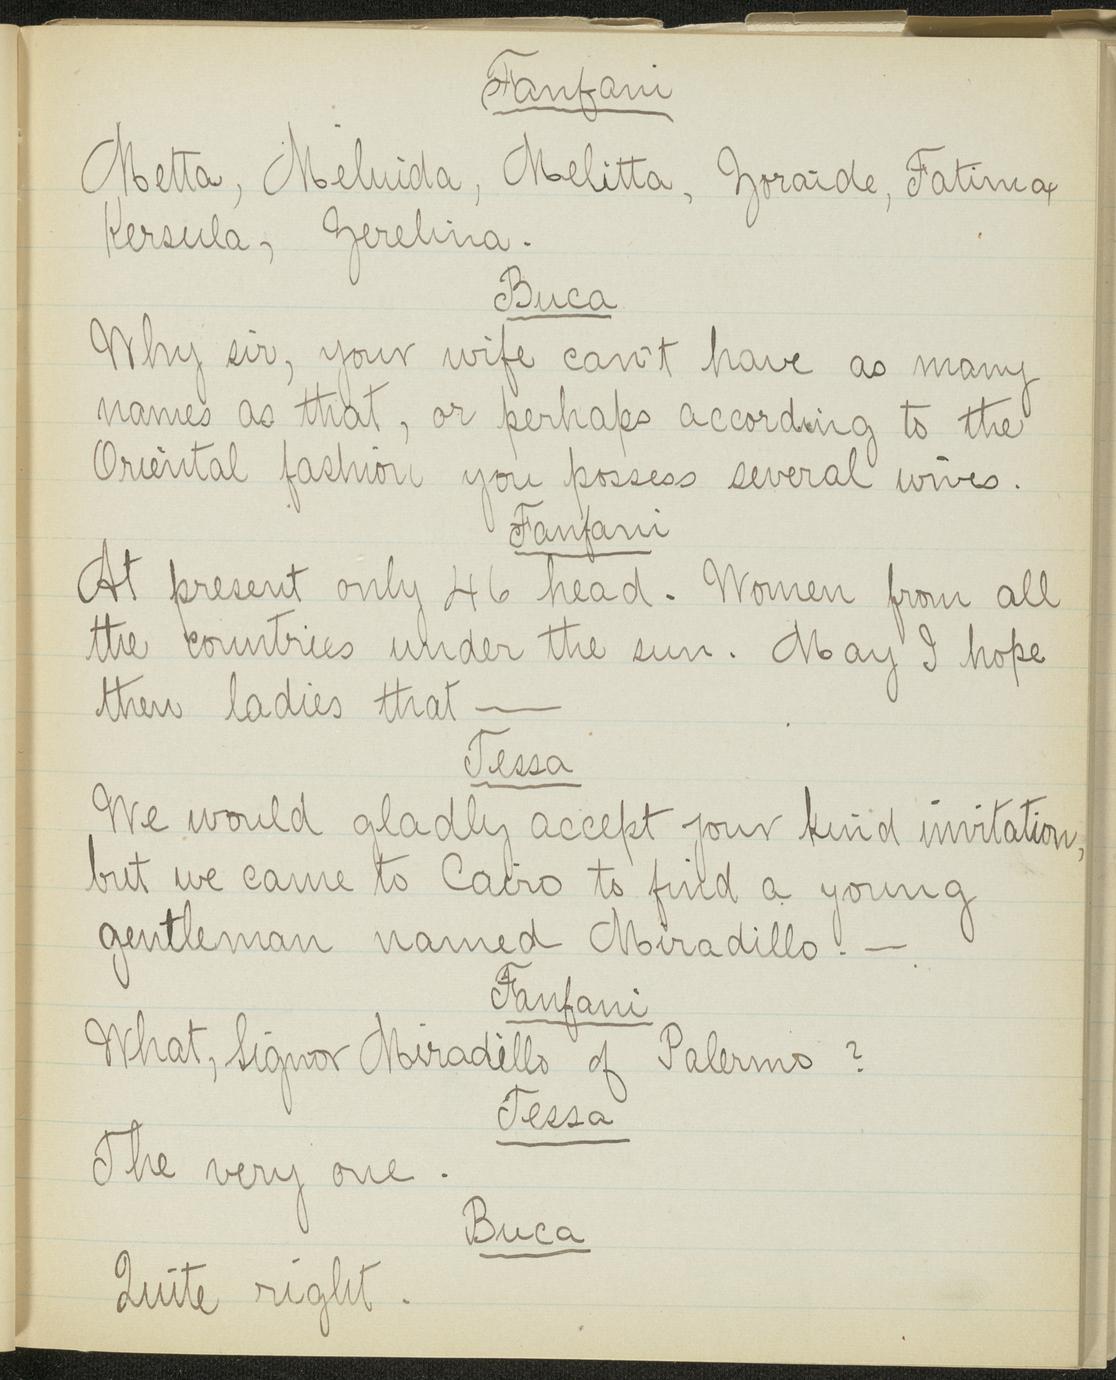 Fanfani
Metta, Meluida, Melitta, Zoraide, Fatima
Kersula, Zerelina.
Buca
Why sir, your wife can't have as many
names as that, or perhaps according to the
Oriental fashion you possess several wives.
Fanfani
At present only 46 head. Women from all
the countries under the sun. May I hope
then ladies that —
Tessa
We would gladly accept your kind invitation,
but we came to Cairo to find a young
gentleman named Miradillo. —
Fanfani
What, Signor Miradillo of Palermo ?
Tessa
The very one .
Buca
Quite right .